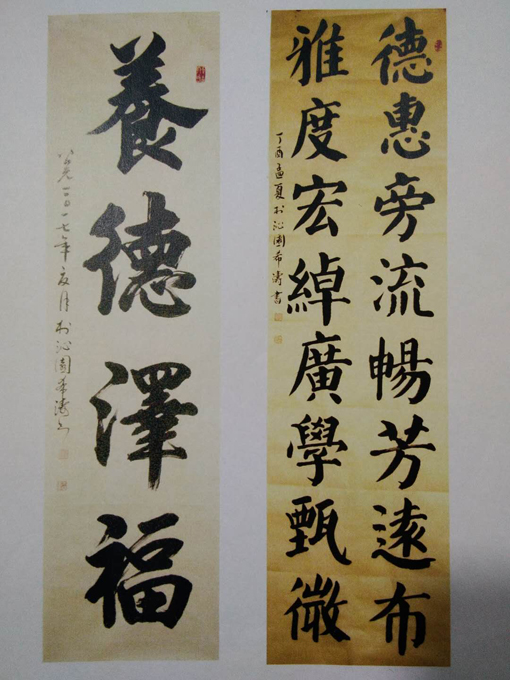 德惠旁流暢芳遠布
雅度宏綽廣學甄微
丁酉孟夏於沁園希濤書
養德澤福
公元二〇一七年夏月於沁園希濤書